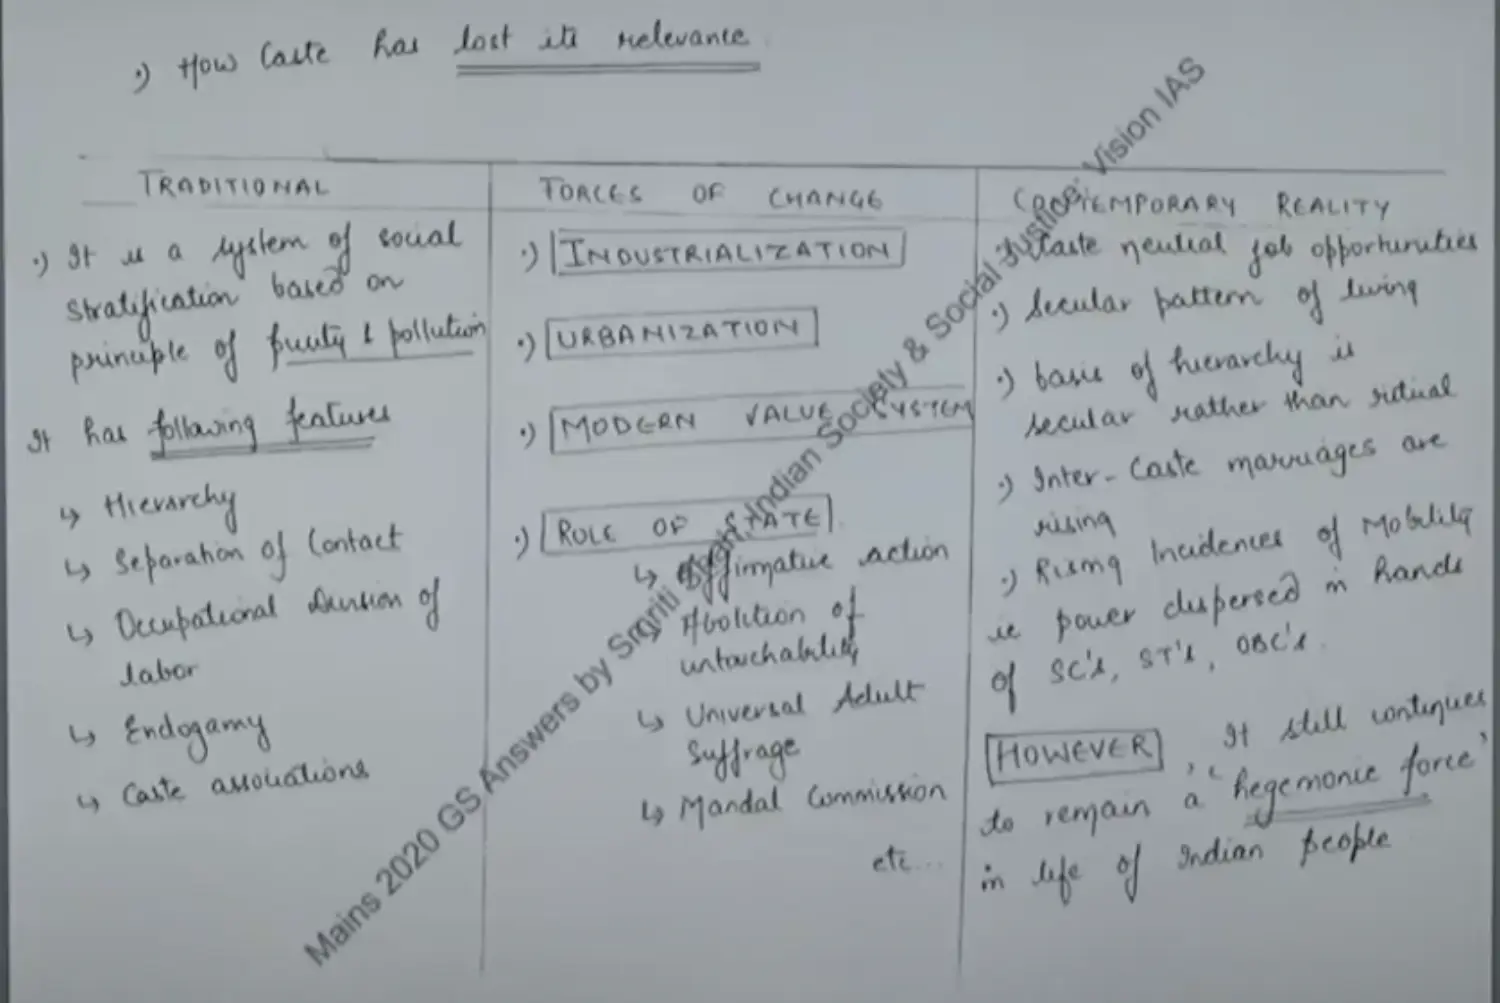 •) How Caste has lost its relevance
TRADITIONAL
•) It is a system of social
stratification based on
principle of purity & pollution
It has following features
↳ Hierarchy
↳ Separation of Contact
↳ Occupational division of
labor
↳ Endogamy
↳ Caste associations
FORCES OF CHANGE
•) INDUSTRIALIZATION
•) URBANIZATION
•) MODERN VALUE SYSTEM
•) ROLE OF STATE
↳ Affirmative action
↳ Abolition of
untouchability
↳ Universal Adult
Suffrage
↳ Mandal Commission
etc...
CONTEMPORARY REALITY
•) Caste neutral job opportunities
•) Secular pattern of living
•) basis of hierarchy is
secular rather than ritual
•) Inter-Caste marriages are
rising
•) Rising Incidences of Mobility
ie power dispersed in hands
of SC's, ST's, OBC's.
HOWEVER, It still continues
to remain a 'hegemonic force'
in life of Indian people
Mains 2020 GS Answers by Smriti Shah, Indian Society & Social Justice: Vision IAS